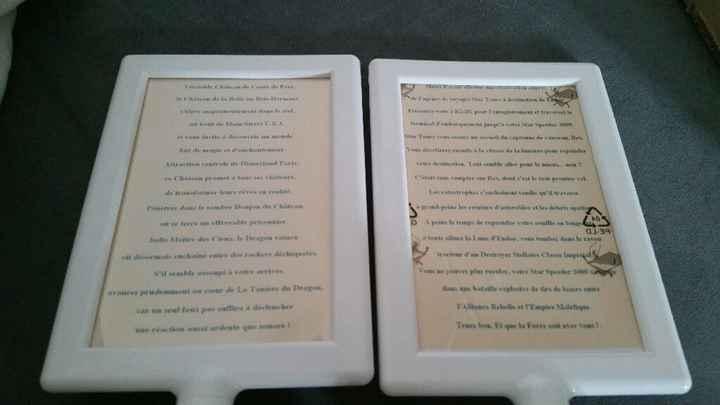 Véritable Château de Conte de Fées,
le Château de la Belle au Bois Dormant
s'élève majestueusement dans le ciel,
au bout de Main Street U.S.A.
et vous invite à découvrir un monde
fait de magie et d'enchantement.
Attraction centrale de Disneyland Paris,
ce Château promet à tous ses visiteurs,
de transformer leurs rêves en réalité.
Pénétrez dans le sombre Donjon du Château
où se terre un effroyable prisonnier.
Jadis Maître des Cieux, le Dragon vaincu
gît désormais enchaîné entre des rochers déchiquetés.
S'il semble assoupi à votre arrivée,
avancez prudemment au cœur de La Tanière du Dragon,
car un seul faux pas suffira à déclencher
une réaction aussi ardente que sonore !
de l'agence de voyages Star Tours à destination de
Présentez-vous à pour l'enregistrement et traversez le
terminal d'embarquement jusqu'à votre Star Speeder 3000.
Star Tours vous assure un accueil du capitaine de vaisseau, Rex.
Vous décollerez ensuite à la vitesse de la lumière pour rejoindre
votre destination. Tout semble aller pour le mieux... non ?
C'était sans compter sur Rex, dont c'est le tout premier vol.
Les catastrophes s'enchaînent tandis qu'il traverse
à grand-peine les ceintures d'astéroïdes et les débris
A peine le temps de reprendre votre souffle en
e route allant la Lune d'Endor, vous tombez dans le rayon
tracteur d'un Destroyer Stellaire Classe Impérial
Vous ne pouvez plus reculer, votre Star Speeder 3000
dans une bataille explosive de tirs de lasers entre
l'Alliance Rebelle et l'Empire Maléfique.
Tenez bon. Et que la Force soit avec vous !